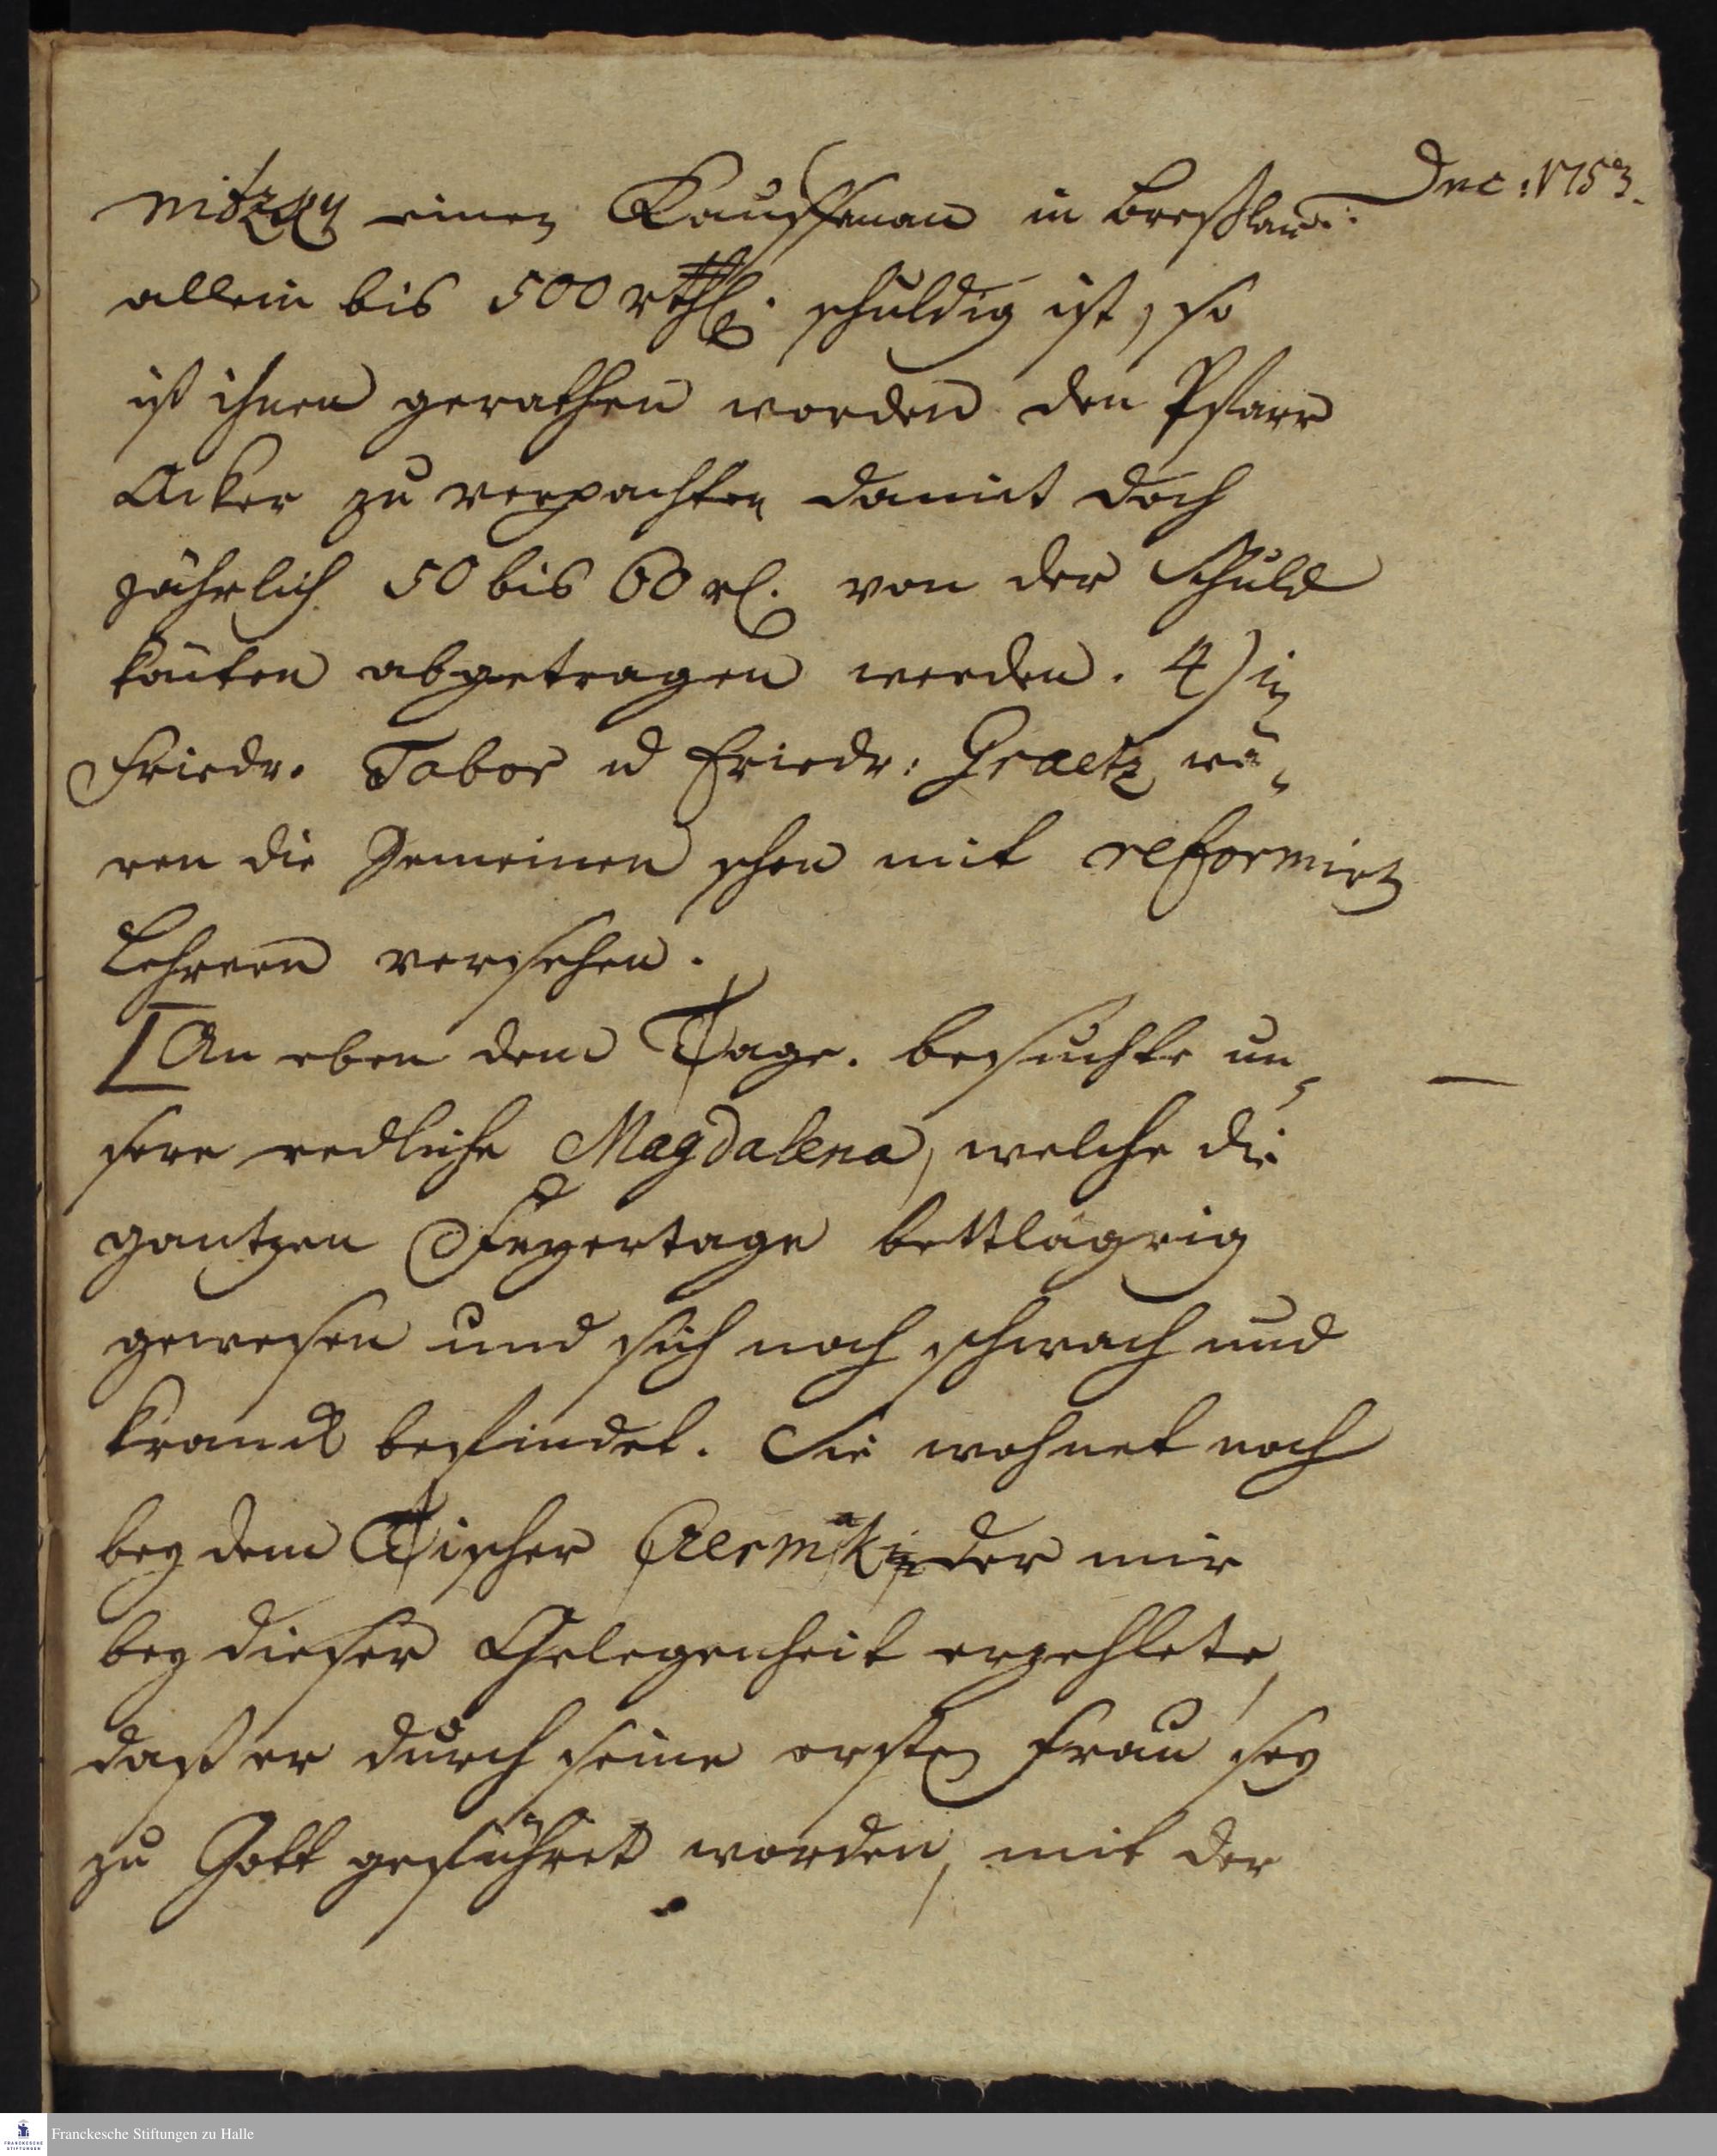 Dec: 1753.
nitzky einen Kauffman in Breßlau
allein bis 500 rthl. schuldig ist, so
ist ihnen gerathen worden den Pfarr
Acker zu verpachten damit doch
jährlich 50 bis 60 rl. von der Schuld
könten abgetragen werden. 4) in
Friedr. Tabor u Friedr: Graetz wä-
ren die Gemeinen schon mit reformirten
Lehrern versehen.
[An eben dem Tage. besuchte un-
sere redliche Magdalena, welche die
gantzen Feyertage bettlägrig
gewesen und sich noch schwach und
kranck befindet. Sie wohnet noch
bey dem Tischer der mir
bey dieser Gelegenheit erzehlete,
daß er durch seine erste Frau sey
zu Gott geführet worden, mit der
Franckesche Stiftungen zu Halle